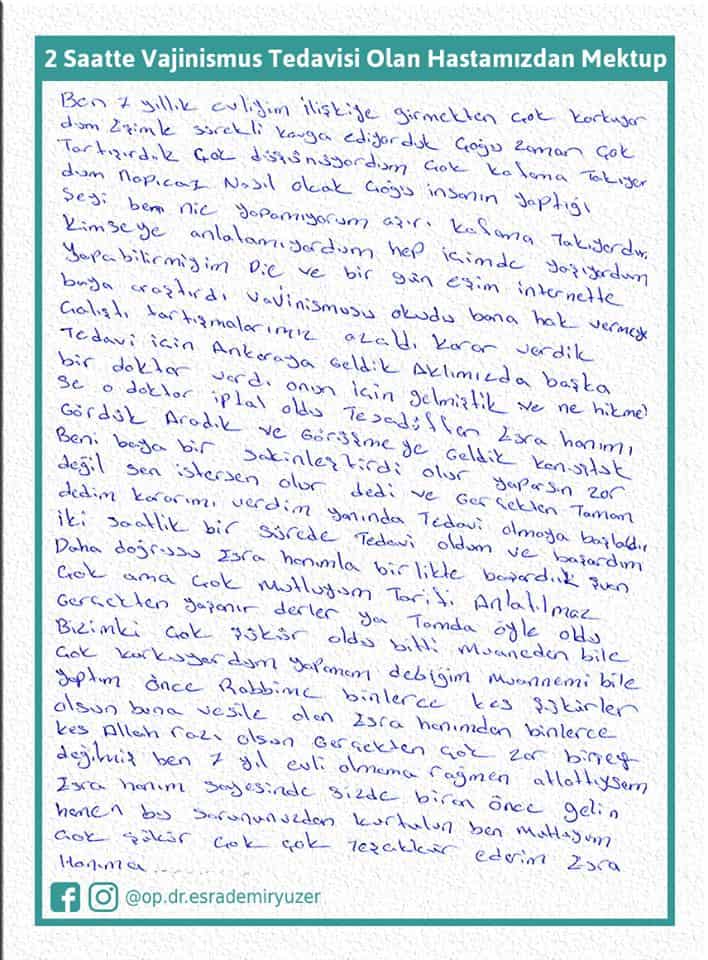 2 Saatte Vajinismus Tedavisi Olan Hastamızdan Mektup
Ben 7 yıllık evliyim ilişkiye girmekten çok korkuyor
dum Eşimle sürekli kavga ediyorduk Çoğu zaman çok
Tartışırdık Çok düşünüyordum Çok kafama Takıyor
dum Napıcaz Nasıl olcak Çoğu insanın yaptığı
Şeyi ben niç yapamıyorum aşırı kafama Takıyordum
Kimseye anlatamıyordum hep içimde yaşıyordum
Yapabilirmiyim Diye ve bir gün eşim internette
baya araştırdı vajinismusu okudu bana hak vermeye
Çalıştı tartışmalarımız azaldı karar verdik
Tedavi için Ankaraya Geldik Aklımızda başka
bir doktor vardı onun için gelmiştik ve ne hikmet
se o doktor iptal oldu Tesadüfen Esra hanımı
Gördük Aradık ve Görüşmeye Geldik konuştuk
Beni baya bir sakinleştirdi olur yaparsın zor
değil sen istersen olur dedi ve Gerçekten Tamam
dedim kararımı verdim yanında Tedavi olmaya başladım
iki saatlik bir sürede Tedavi oldum ve başardım
Daha doğrusu Esra hanımla birlikte başardık şuan
Çok ama Çok Mutluyum Tarifi Anlatılmaz
Gerçekten yaşanır derler ya Tamda öyle oldu
Bizimki Çok şükür oldu bitti Muaneden bile
Çok korkuyordum yapamam debiğim Muannemi bile
yaptım Önce Rabbime binlerce kes şükürler
olsun buna vesile olan Esra hanımdan binlerce
kes Allah razı olsun Gerçekten Çok zor birşey
değilmiş ben 7 yıl evli olmama rağmen atlattıysam
Esra hanım sayesinde sizde biran önce gelin
hemen bu sorununuzdan kurtulun ben Mutluyum
Çok şükür Çok çok Teşekkür ederim Esra
Hanıma ..........
@op.dr.esrademiryuzer